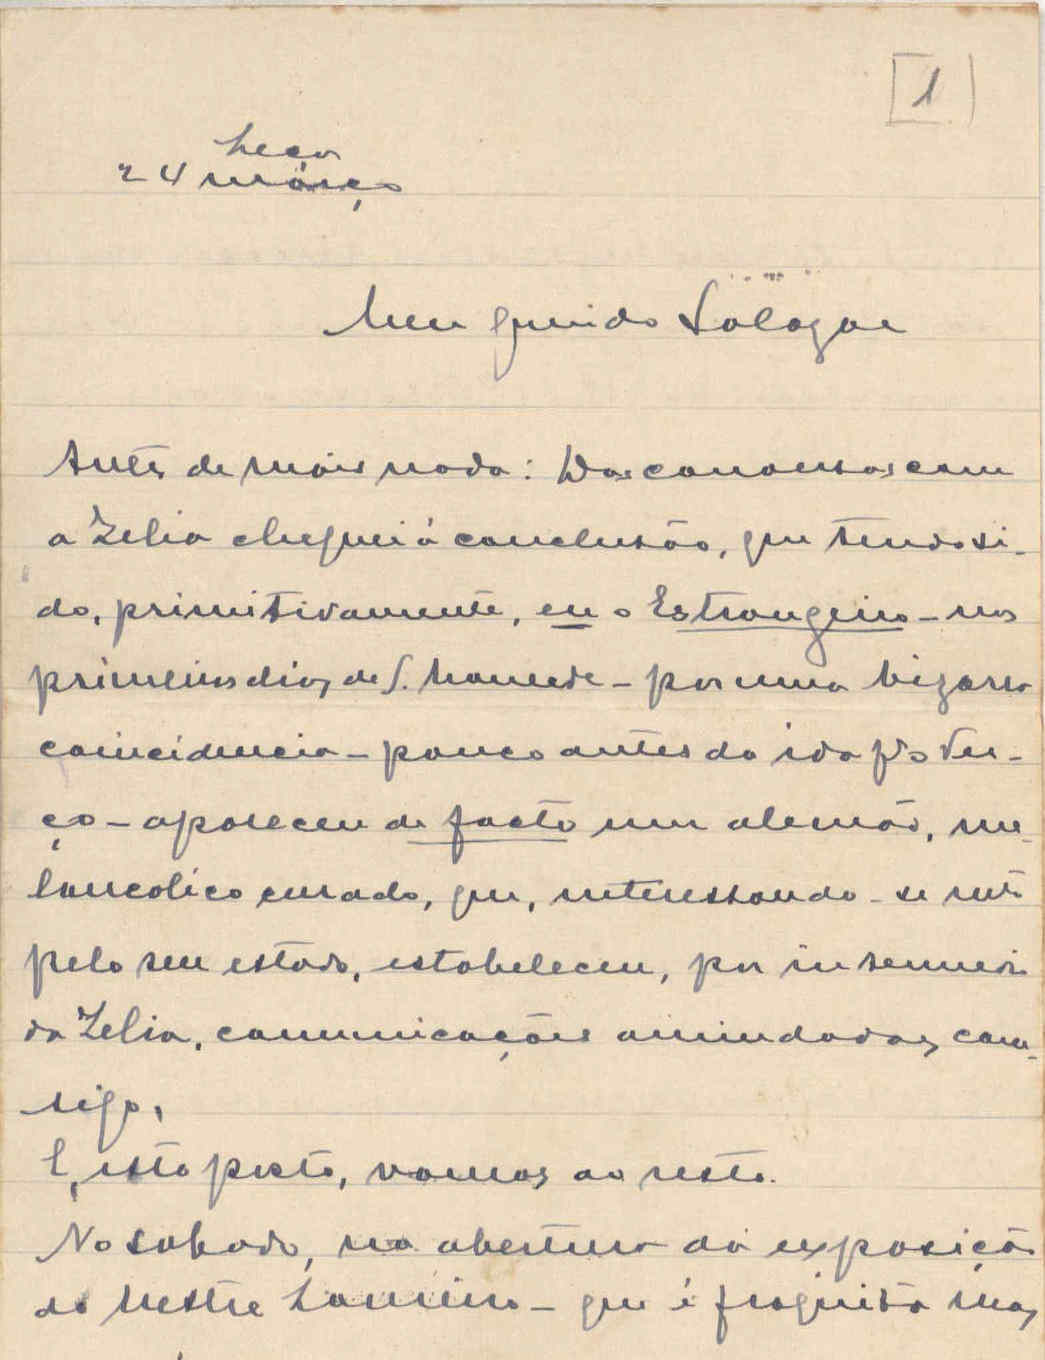 [1]
Leça
24 março
Meu querido Salazar
Antes de mais nada: Das conversas com
a Zelia cheguei á conclusão, que tendo si-
do, primitivamente, eu o Estrangeiro – nos
primeiros dias de S. Mamede – por uma bizarra
coincidencia – pouco antes da ida p.ª o Ser-
ço – apareceu de facto um alemão, me-
lancolico curado, que, interessando-se mto
pelo seu estado, estabeleceu, por intermedio
da Zelia, comunicações amiudadas com-
sigo.
E, isto posto, vamos ao resto.
No sabado, na abertura da exposição
do Mestre Lameiro – que é fraquita mas